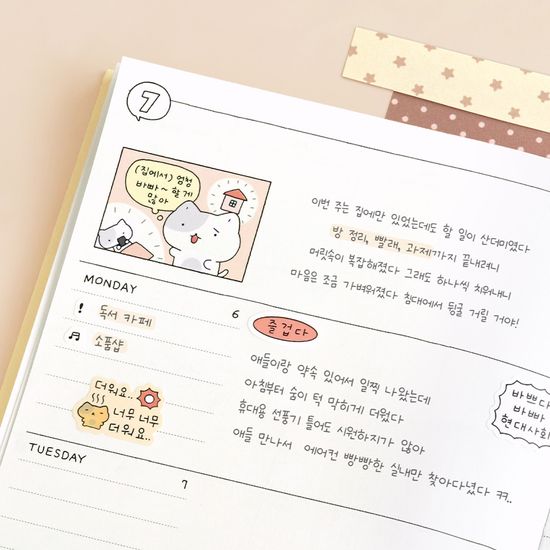 7
(집에서) 엄청
바빠~ 할 게
많아
이번 주는 집에만 있었는데도 할 일이 산더미였다
방 정리, 빨래, 과제까지 끝내려니
머릿속이 복잡해졌다 그래도 하나씩 치워내니
마음은 조금 가벼워졌다 침대에서 뒹굴 거릴 거야!
MONDAY
6
! 독서 카페
♬ 소품샵
더워요..
너무 너무
더워요..
즐겁다
애들이랑 약속 있어서 일찍 나왔는데
아침부터 숨이 턱 막히게 더웠다
휴대용 선풍기 틀어도 시원하지가 않아
애들 만나서 에어컨 빵빵한 실내만 찾아다녔다 ㅋㅋ..
바쁘다
바빠
현대사회
TUESDAY
7